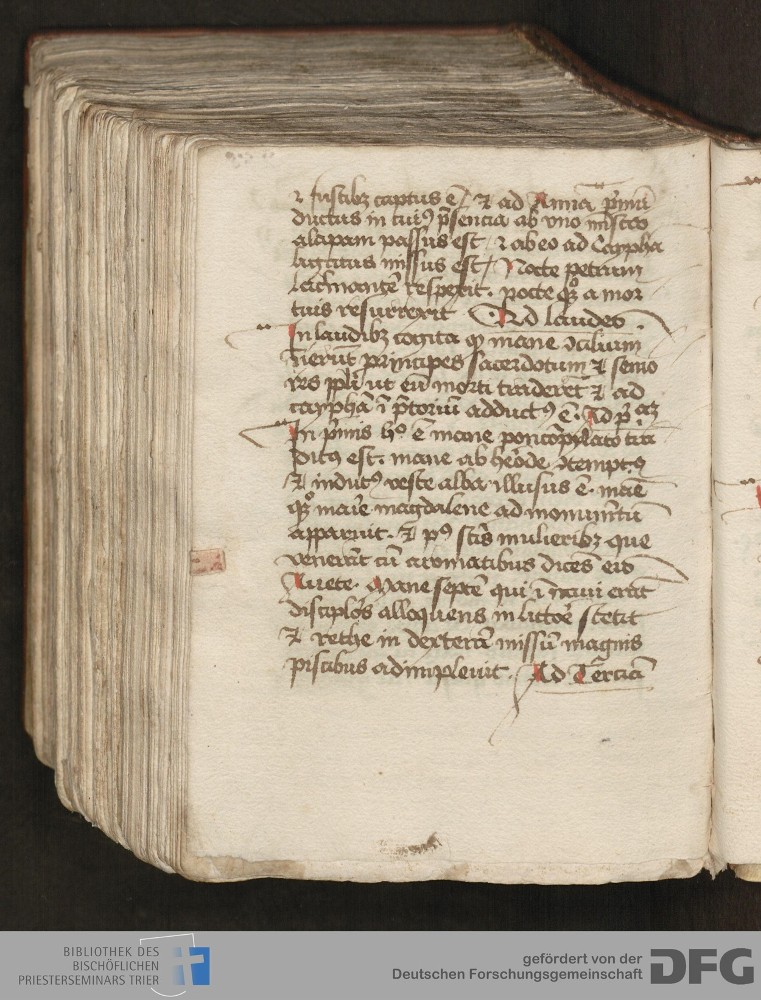 ⁊ fustibꝫ captus ē / ⁊ ad Annā p̄mū
ductus in cuiꝰ p̄sencia ab vno mīstro
alapam passus est / ⁊ ab eo ad Caypha
ligatus missus est / Nocte petrum
respexit . nocte a mor
tuis resurrexit Ad laudes .
In laudibꝫ cogita ꝙ mane ꝯsilium
principes sacerdotum ⁊ senio
res ut eū morti traderēt ⁊ ad
cayphā ī p̄toriū adductꝰ ē . Ad
In p̄mis ē mane poncio pylato tra
ditꝰ est . mane ab herode ꝯtemptꝰ
⁊ indutꝰ veste alba illusus ē . mane
magdalene ad monumētū
apparuit . ⁊ scis mulieribꝫ que
venerāt cū aromatibus dicēs eis
Auete . Mane septē qui ī naui erāt
alloquens in littore stetit
⁊ rethe in dexterā missū magnis
piscibus adimpleuit . Ad Terciā
BIBLIOTHEK DES
BISCHÖFLICHEN
PRIESTERSEMINARS TRIER
gefördert von der
Deutschen Forschungsgemeinschaft
DFG